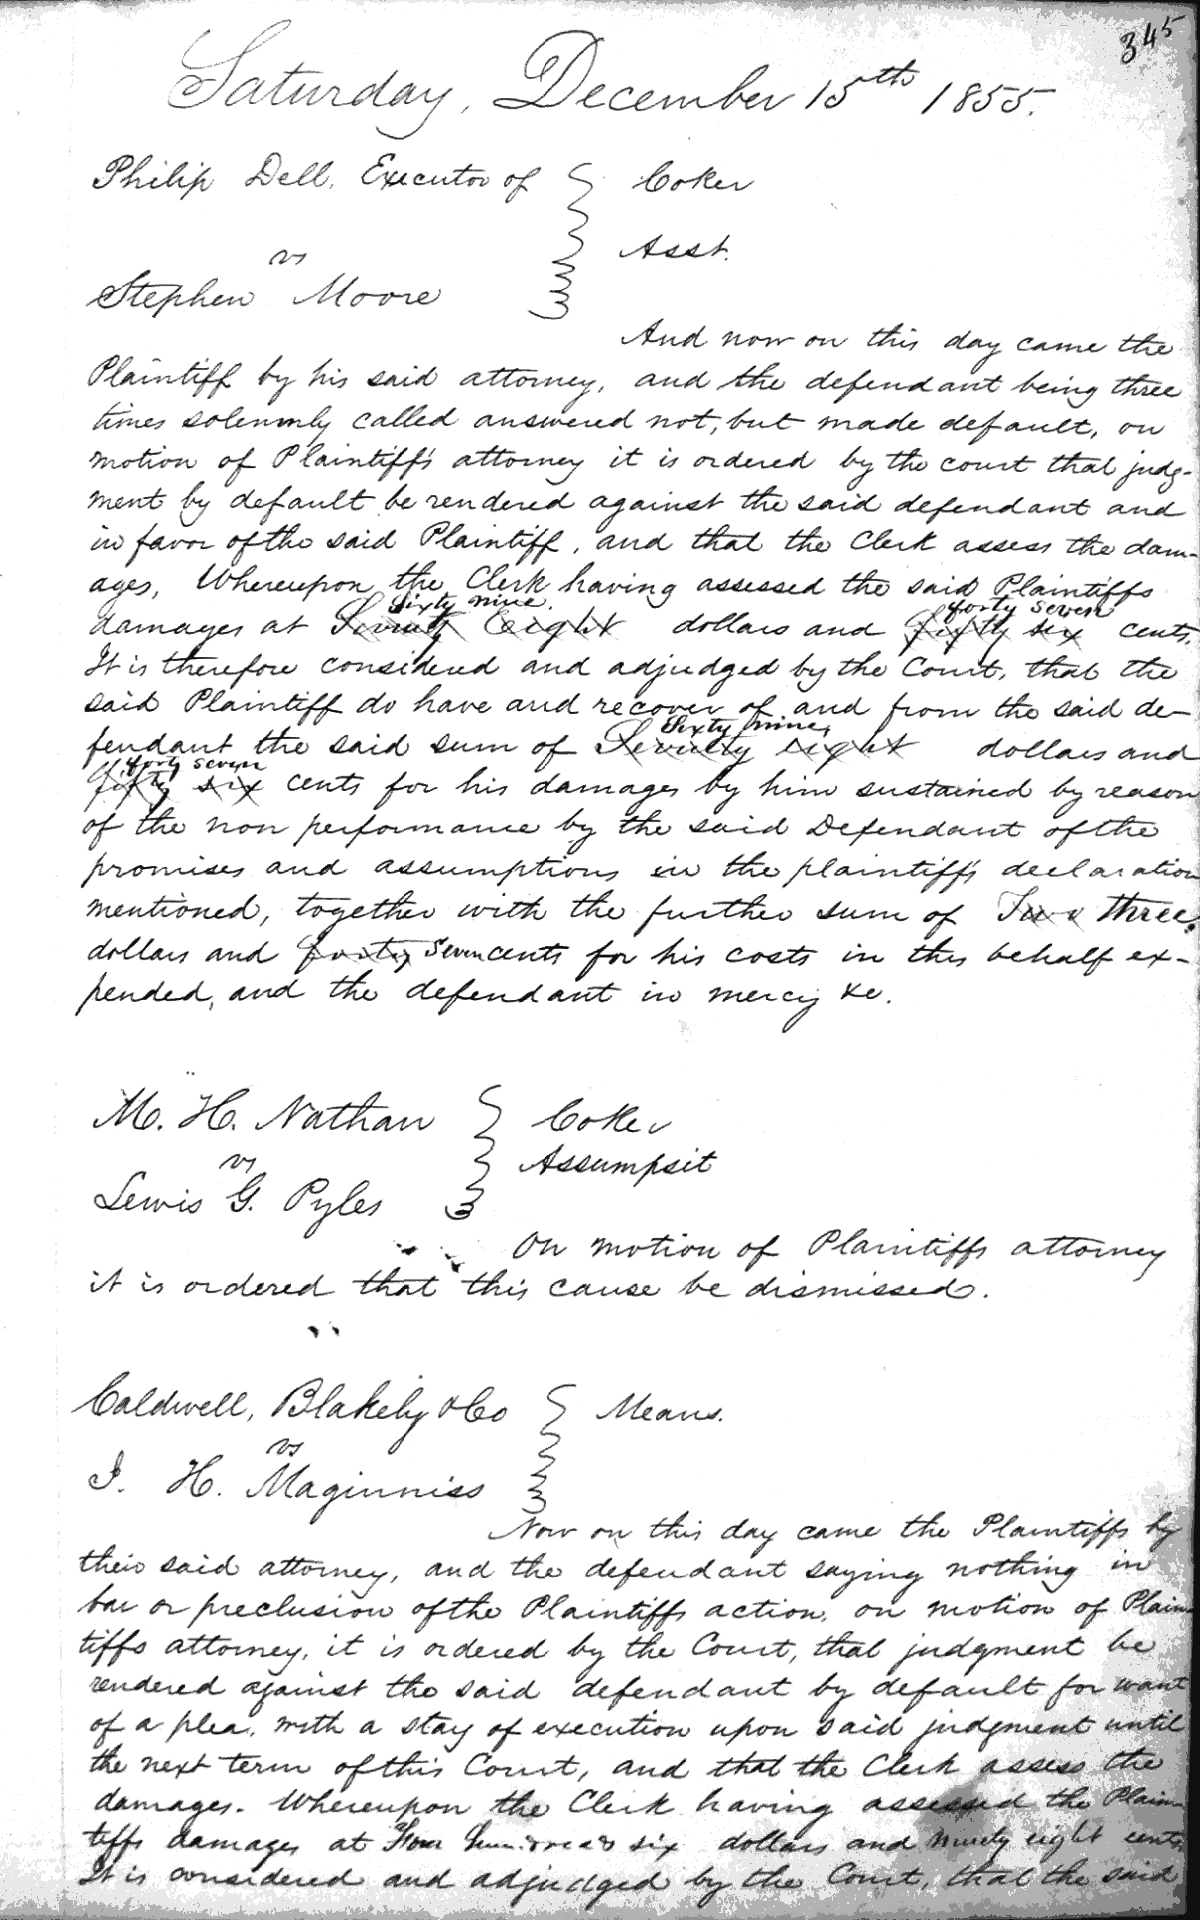 345
Saturday, December 15th 1855.
Philip Dell, Executor of } Coker
vs Asst.
Stephen Moore
And now on this day came the
Plaintiff by his said attorney, and the defendant being three
times solemnly called answered not, but made default, on
motion of Plaintiff's attorney it is ordered by the court that judg-
ment by default be rendered against the said defendant and
in favor of the said Plaintiff, and that the Clerk assess the dam-
ages, Whereupon the Clerk having assessed the said Plaintiffs
Sixty nine. forty seven
damages at Seventy Eight dollars and fifty six cents.
It is therefore considered and adjudged by the Court, that the
said Plaintiff do have and recover of and from the said de-
Sixty nine,
fendant the said sum of Seventy eight dollars and
forty seven
fifty six cents for his damages by him sustained by reason
of the non performance by the said Defendant of the
promises and assumptions in the plaintiff's declaration
mentioned, together with the further sum of Two three
dollars and forty Seven cents for his costs in this behalf ex-
pended, and the defendant in mercy &c.
M. H. Nathan } Coker
vs Assumpsit
Lewis G. Pyles
On motion of Plaintiffs attorney
it is ordered that this cause be dismissed.
Caldwell, Blakely & Co } Means.
vs
I. H. Maginniss
Now on this day came the Plaintiffs by
their said attorney, and the defendant saying nothing in
bar or preclusion of the Plaintiffs action, on motion of Plain-
tiffs attorney, it is ordered by the Court, that judgment be
rendered against the said defendant by default for want
of a plea, with a stay of execution upon said judgment until
the next term of this Court, and that the Clerk assess the
damages. Whereupon the Clerk having assessed the Plain-
tiffs damages at Four hundred six dollars and ninety eight cents
It is considered and adjudged by the Court, that the said